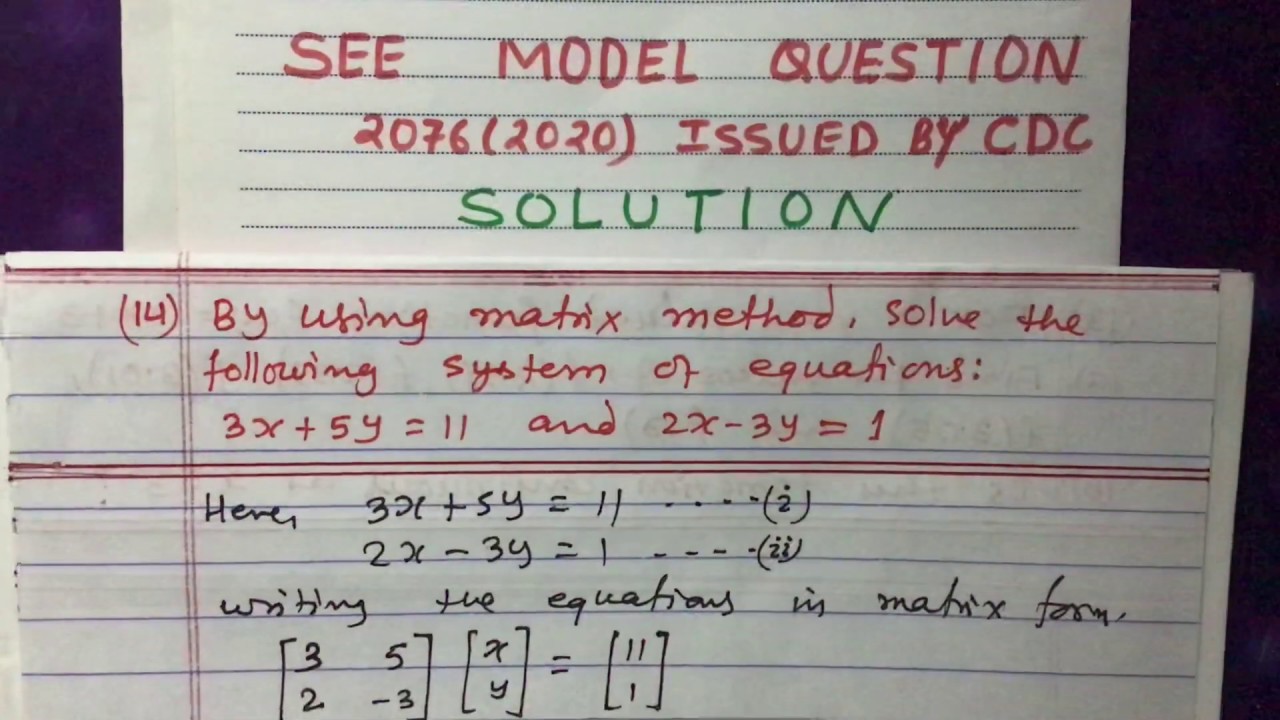 SEE MODEL QUESTION
2076(2020) ISSUED BY CDC
SOLUTION
(14) By using matrix method, solve the
following system of equations:
3x+5y = 11 and 2x-3y = 1
Here, 3x+5y = 11 ....-(i)
2x-3y = 1 ----(ii)
writing the equations in matrix form,
[3 5] [x] = [11]
[2 -3] [y] [1]